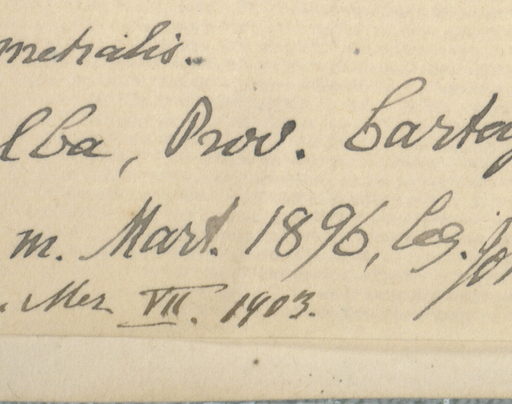 metralis.
lba, Prov. Cartag
m. Mart. 1896, leg. Jon
. Mez VII. 1903.